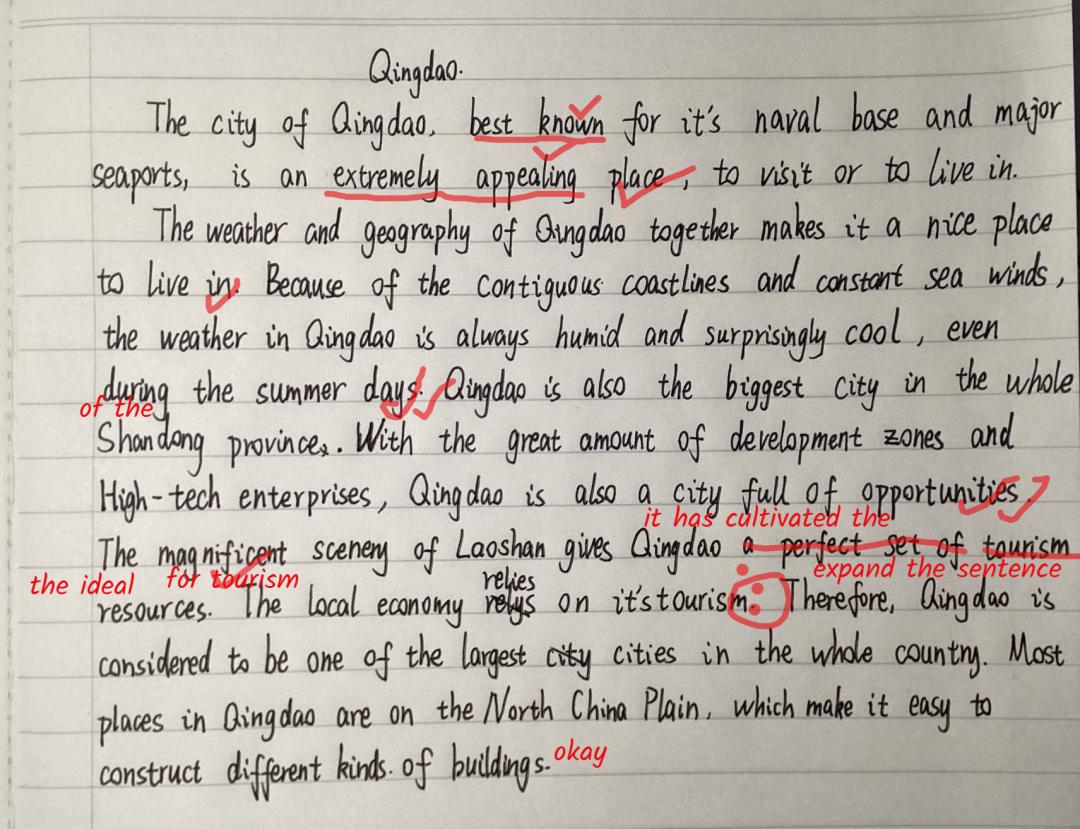 Qingdao.
The city of Qingdao, best known for it's naval base and major
seaports, is an extremely appealing place, to visit or to live in.
The weather and geography of Qingdao together makes it a nice place
to live in. Because of the contiguous coastlines and constant sea winds,
the weather in Qingdao is always humid and surprisingly cool, even
during the summer days. Qingdao is also the biggest city in the whole
of the
Shandong province. With the great amount of development zones and
High-tech enterprises, Qingdao is also a city full of opportunities.
it has cultivated the
The magnificent scenery of Laoshan gives Qingdao a perfect set of tourism
the ideal for tourism expand the sentence
relies
resources. The local economy relys on it's tourism. Therefore, Qingdao is
considered to be one of the largest city cities in the whole country. Most
places in Qingdao are on the North China Plain, which make it easy to
construct different kinds. of buildings. okay